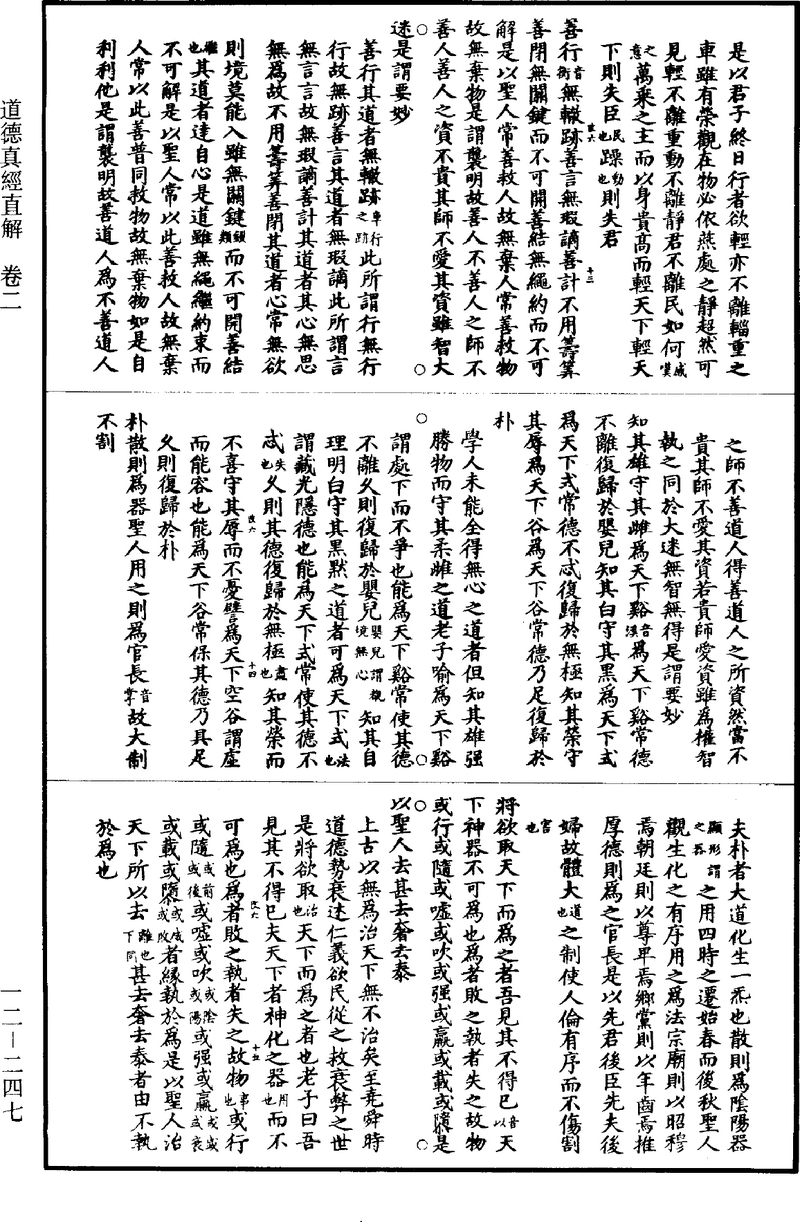 道德真經直解　卷二
一二－二四七
是以君子終日行者欲輕亦不離輜重之
車雖有榮觀在物必依燕處之靜超然可
見輕不離重動不離靜君不離民如何感嘆
之意萬乘之主而以身貴高而輕天下輕天
下則失臣民也躁動也則失君
改六
善行音衡無轍跡善言無瑕謫善計不用籌筭
十三
善閉無關鍵而不可開善結無繩約而不可
解是以聖人常善救人故無棄人常善救物
故無棄物是謂襲明故善人不善人之師不
善人善人之資不貴其師不愛其資雖智大
迷是謂要妙
善行其道者無轍跡車行之跡此所謂行無行
行故無跡善言其道者無瑕謫此所謂言
無言言故無瑕謫善計其道者其心無思
無爲故不用籌筭善閉其道者心常無欲
則境莫能入雖無關鍵鏁類而不可開善結
繼也其道者達自心是道雖無繩繼約束而
不可解是以聖人常以此善救人故無棄
人常以此善普同救物故無棄物如是自
利利他是謂襲明故善道人爲不善道人
之師不善道人得善道人之所資然當不
貴其師不愛其資若貴師愛資雖爲權智
執之同於大迷無智無得是謂要妙
知其雄守其雌爲天下谿音溪爲天下谿常德
不離復歸於嬰兒知其白守其黑爲天下式
爲天下式常德不忒復歸於無極知其榮守
其辱爲天下谷爲天下谷常德乃足復歸於
朴
學人未能全得無心之道者但知其雄强
勝物而守其柔雌之道老子喻爲天下谿
謂處下而不爭也能爲天下谿常使其德
不離久則復歸於嬰兒嬰兒謂觀境無心知其自
理明白守其黑默之道者可爲天下式法也
謂藏光隱德也能爲天下式常使其德不
忒失也久則其德復歸於無極盡也知其榮而
改六
不喜守其辱而不憂譬爲天下空谷謂虛
十四
而能容也能爲天下谷常保其德乃具足
久則復歸於朴
朴散則爲器聖人用之則爲官長音掌故大制
不割
夫朴者大道化生一炁也散則爲陰陽器
顯形謂之器之用四時之遷始春而後秋聖人
觀生化之有序用之爲法宗廟則以昭穆
焉朝廷則以尊卑焉鄉黨則以年齒焉推
厚德則爲之官長是以先君後臣先夫後
婦故體大道也之制使人倫有序而不傷割
害也
將欲取天下而爲之者吾見其不得已音以天
下神器不可爲也爲者敗之執者失之故物
或行或隨或噓或吹或强或羸或載或隳是
以聖人去甚去奢去泰
上古以無爲治天下無不治矣至堯舜時
道德勢衰迷仁義欲民從之救衰弊之世
是將欲取治也天下而爲之者也老子曰吾
見其不得已夫天下者神化之器用也而不
改六
可爲也爲者敗之執者失之故物事也或行
十五
或隨或前或後或噓或吹或陰或陽或强或羸或盛或衰
或載或隳或成或敗者緣執於爲是以聖人治
天下所以去離也下同甚去奢去泰者由不執
於爲也